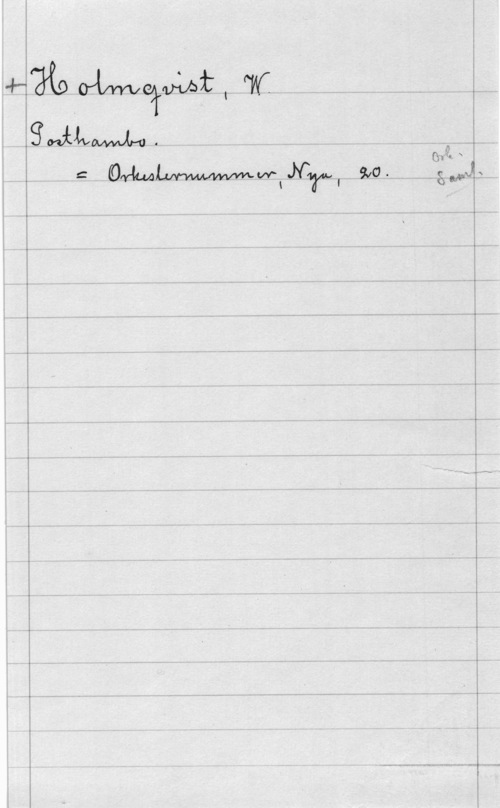 + Holmqvist, W
Posthambo.
= Orkesternummer, Nya, 20.
Ork.
Saml.